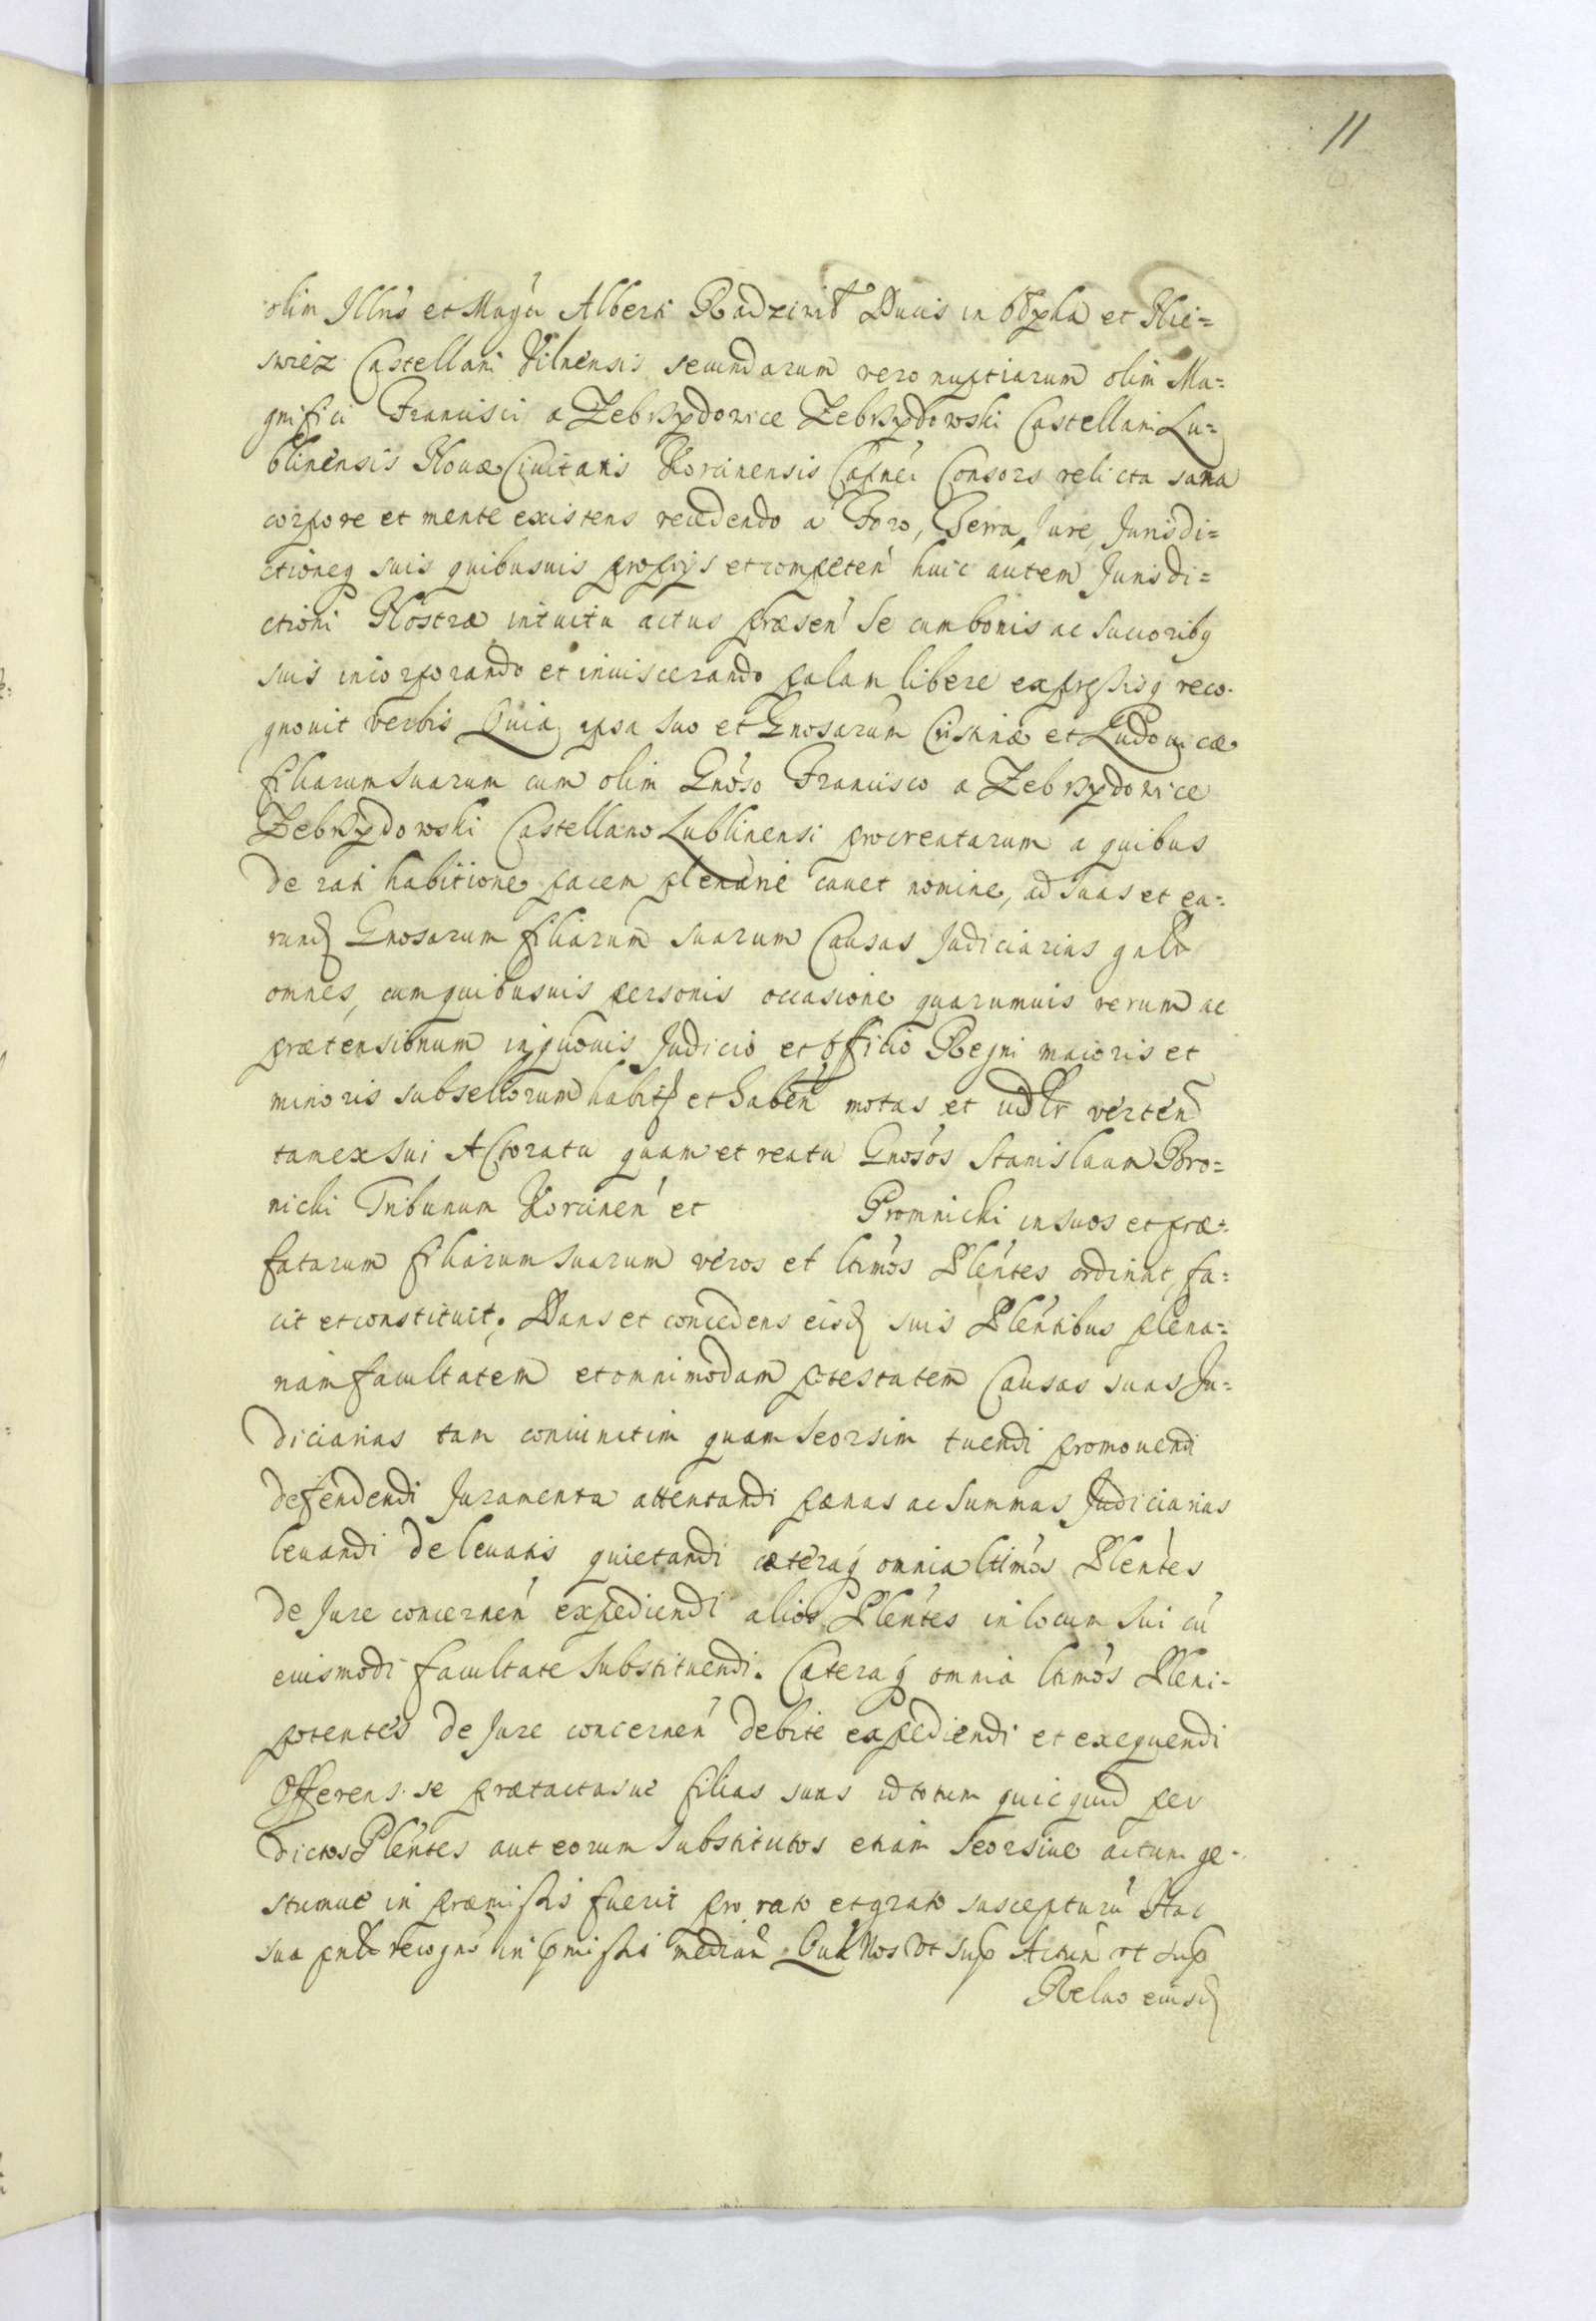 11
olim Illris et Magci Alberti Radziwił Ducis in Ołyka et Nie=
swiez Castellani Vilnensis secundarum vero nuptiarum olim Ma=
gnifici Francisci a Zebrzydowice Zebrzydowski Castellani Lu=
blinensis Novæ Civitatis Korcinensis Capnei Consors relicta sana
corpore et mente existens recedendo a Foro, Terra, Jure, Jurisdi=
ctioneq suis quibusuis proprys et competen huic autem Jurisdi=
ctioni Nostræ intuitu actus præsen Se cum bonis ac Succoribq
suis incorporando et inviscerando palam libere expressisq reco-
gnovit verbis Quia ipsa suo et Gnosarum Cristinæ et Ludovicæ
filiarum suarum cum olim Gnoso Francisco a Zebrzydowice
Zebrzydowski Castellano Lublinensi procreatarum a quibus
de rati habitione pacem plenarie cavet nomine, ad suas et ea=
rund Gnosarum filiarum suarum Causas Judiciarias gnlr
omnes, cum quibusuis personis occasione quarumuis rerum ac
prætensionum in quovis Judicio et Officio Regni maioris et
minoris subselliorum habit et haben motas et verten
tam ex sui Actoratu quam et reatu Gnosos Stanislaum Bro=
nicki Tribunum Korcinen et Promnicki in suos et præ=
fatarum filiarum suarum veros et ltimos Plentes ordinat, fa=
cit et constituit. Dans et concedens eisd suis Plentibus plena=
riam facultatem et omnimodam potestatem Causas suas Ju=
diciarias tam coniunctim quam seorsim tuendi promovendi
defendendi Juramenta attentandi pænas ac Summas Judiciarias
levandi de levatis quietandi cæteraq omnia ltimos Plentes
de Jure concernen expediendi alios Plentes in locum sui cu
eiusmodi facultate substituendi. Cæteraq omnia ltimos Pleni-
potentes de Jure concernen debite expediendi et exequendi
Offerens se prætactasue filias suas id totum quicquid per
dictos Plentes aut eorum substitutos etiam seorsiue actum ge-
stumue in præmissis fuerit pro rato et grato suscepturu Hac
sua recogne in pmissis median Nos ut sup Actum ut sup
Relao eiusd